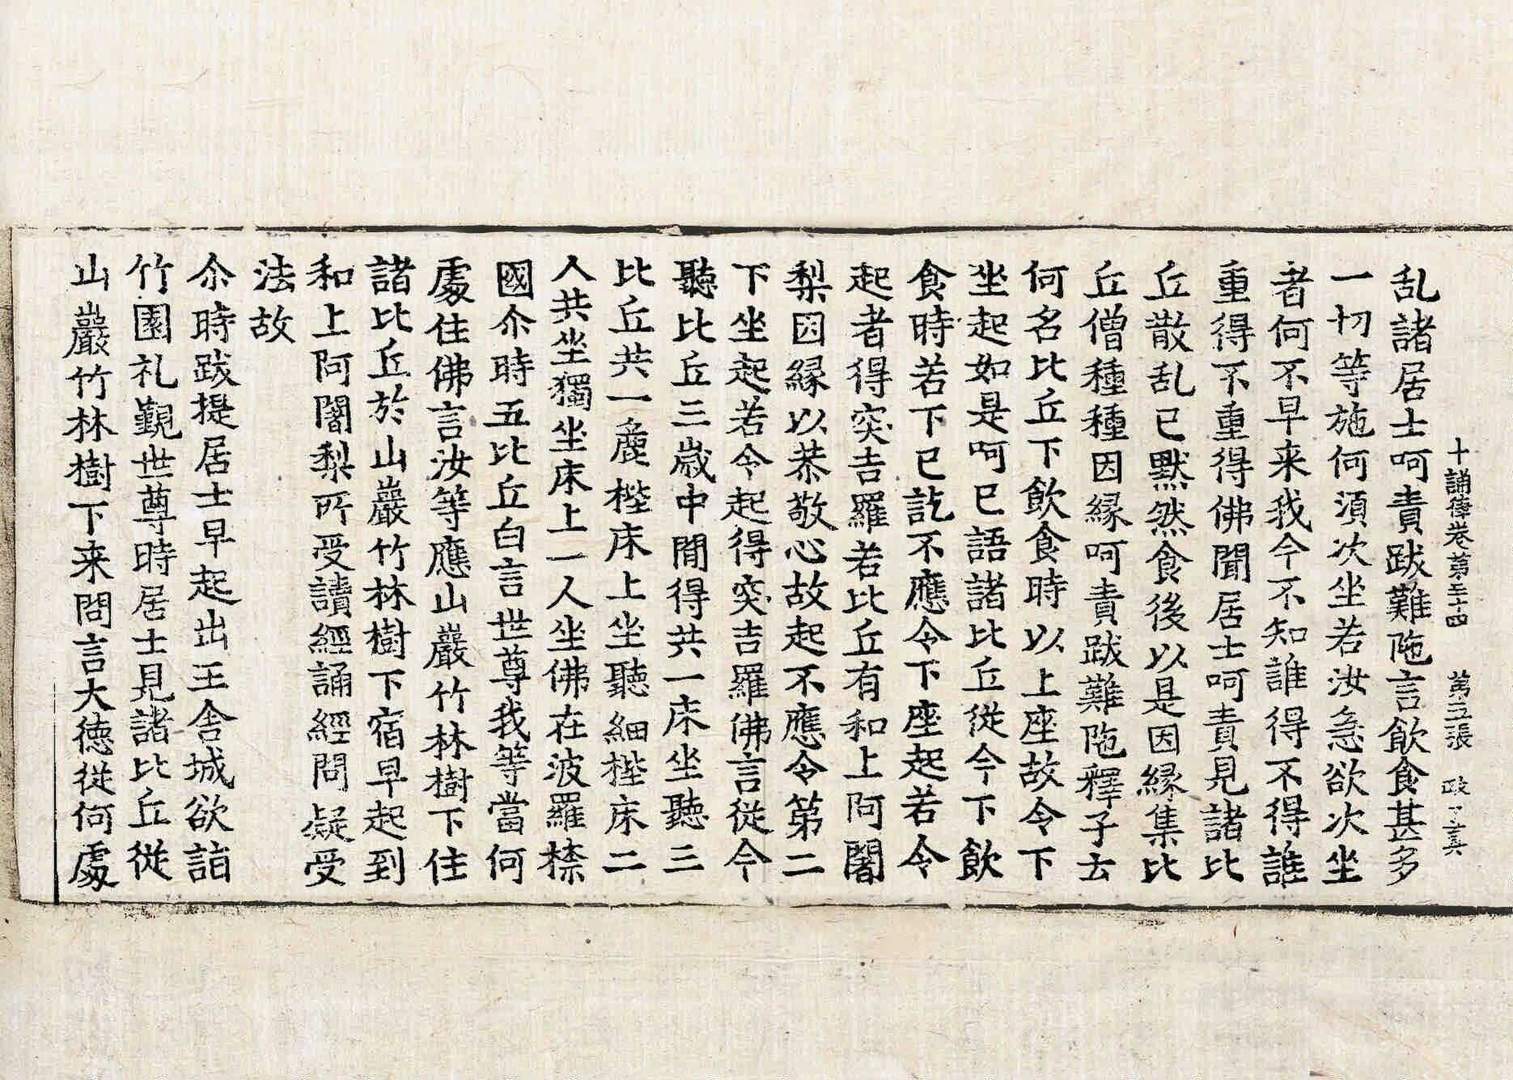 十誦律卷第三十四　第三張　政字号
乱諸居士呵責跋難陁言飲食甚多
一切等施何須次坐若汝急欲次坐
者何不早来我今不知誰得不得誰
重得不重得佛聞居士呵責見諸比
丘散乱已黙然食後以是因縁集比
丘僧種種因縁呵責跋難陁釋子云
何名比丘下飲食時以上座故令下
坐起如是呵已語諸比丘從今下飲
食時若下已訖不應令下座起若令
起者得突吉羅若比丘有和上阿闍
梨因縁以恭敬心故起不應令第二
下坐起若令起得突吉羅佛言従今
聽比丘三歲中間得共一床坐聽三
比丘共一麁梐床上坐聽細梐床二
人共坐獨坐床上一人坐佛在波羅㮈
國尒時五比丘白言世尊我等當何
處住佛言汝等應山巖竹林樹下住
諸比丘於山巖竹林樹下宿早起到
和上阿闍梨所受讀經誦經問疑受
法故
尒時跋提居士早起出王舍城欲詣
竹園礼覲世尊時居士見諸比丘從
山巖竹林樹下来問言大徳從何處